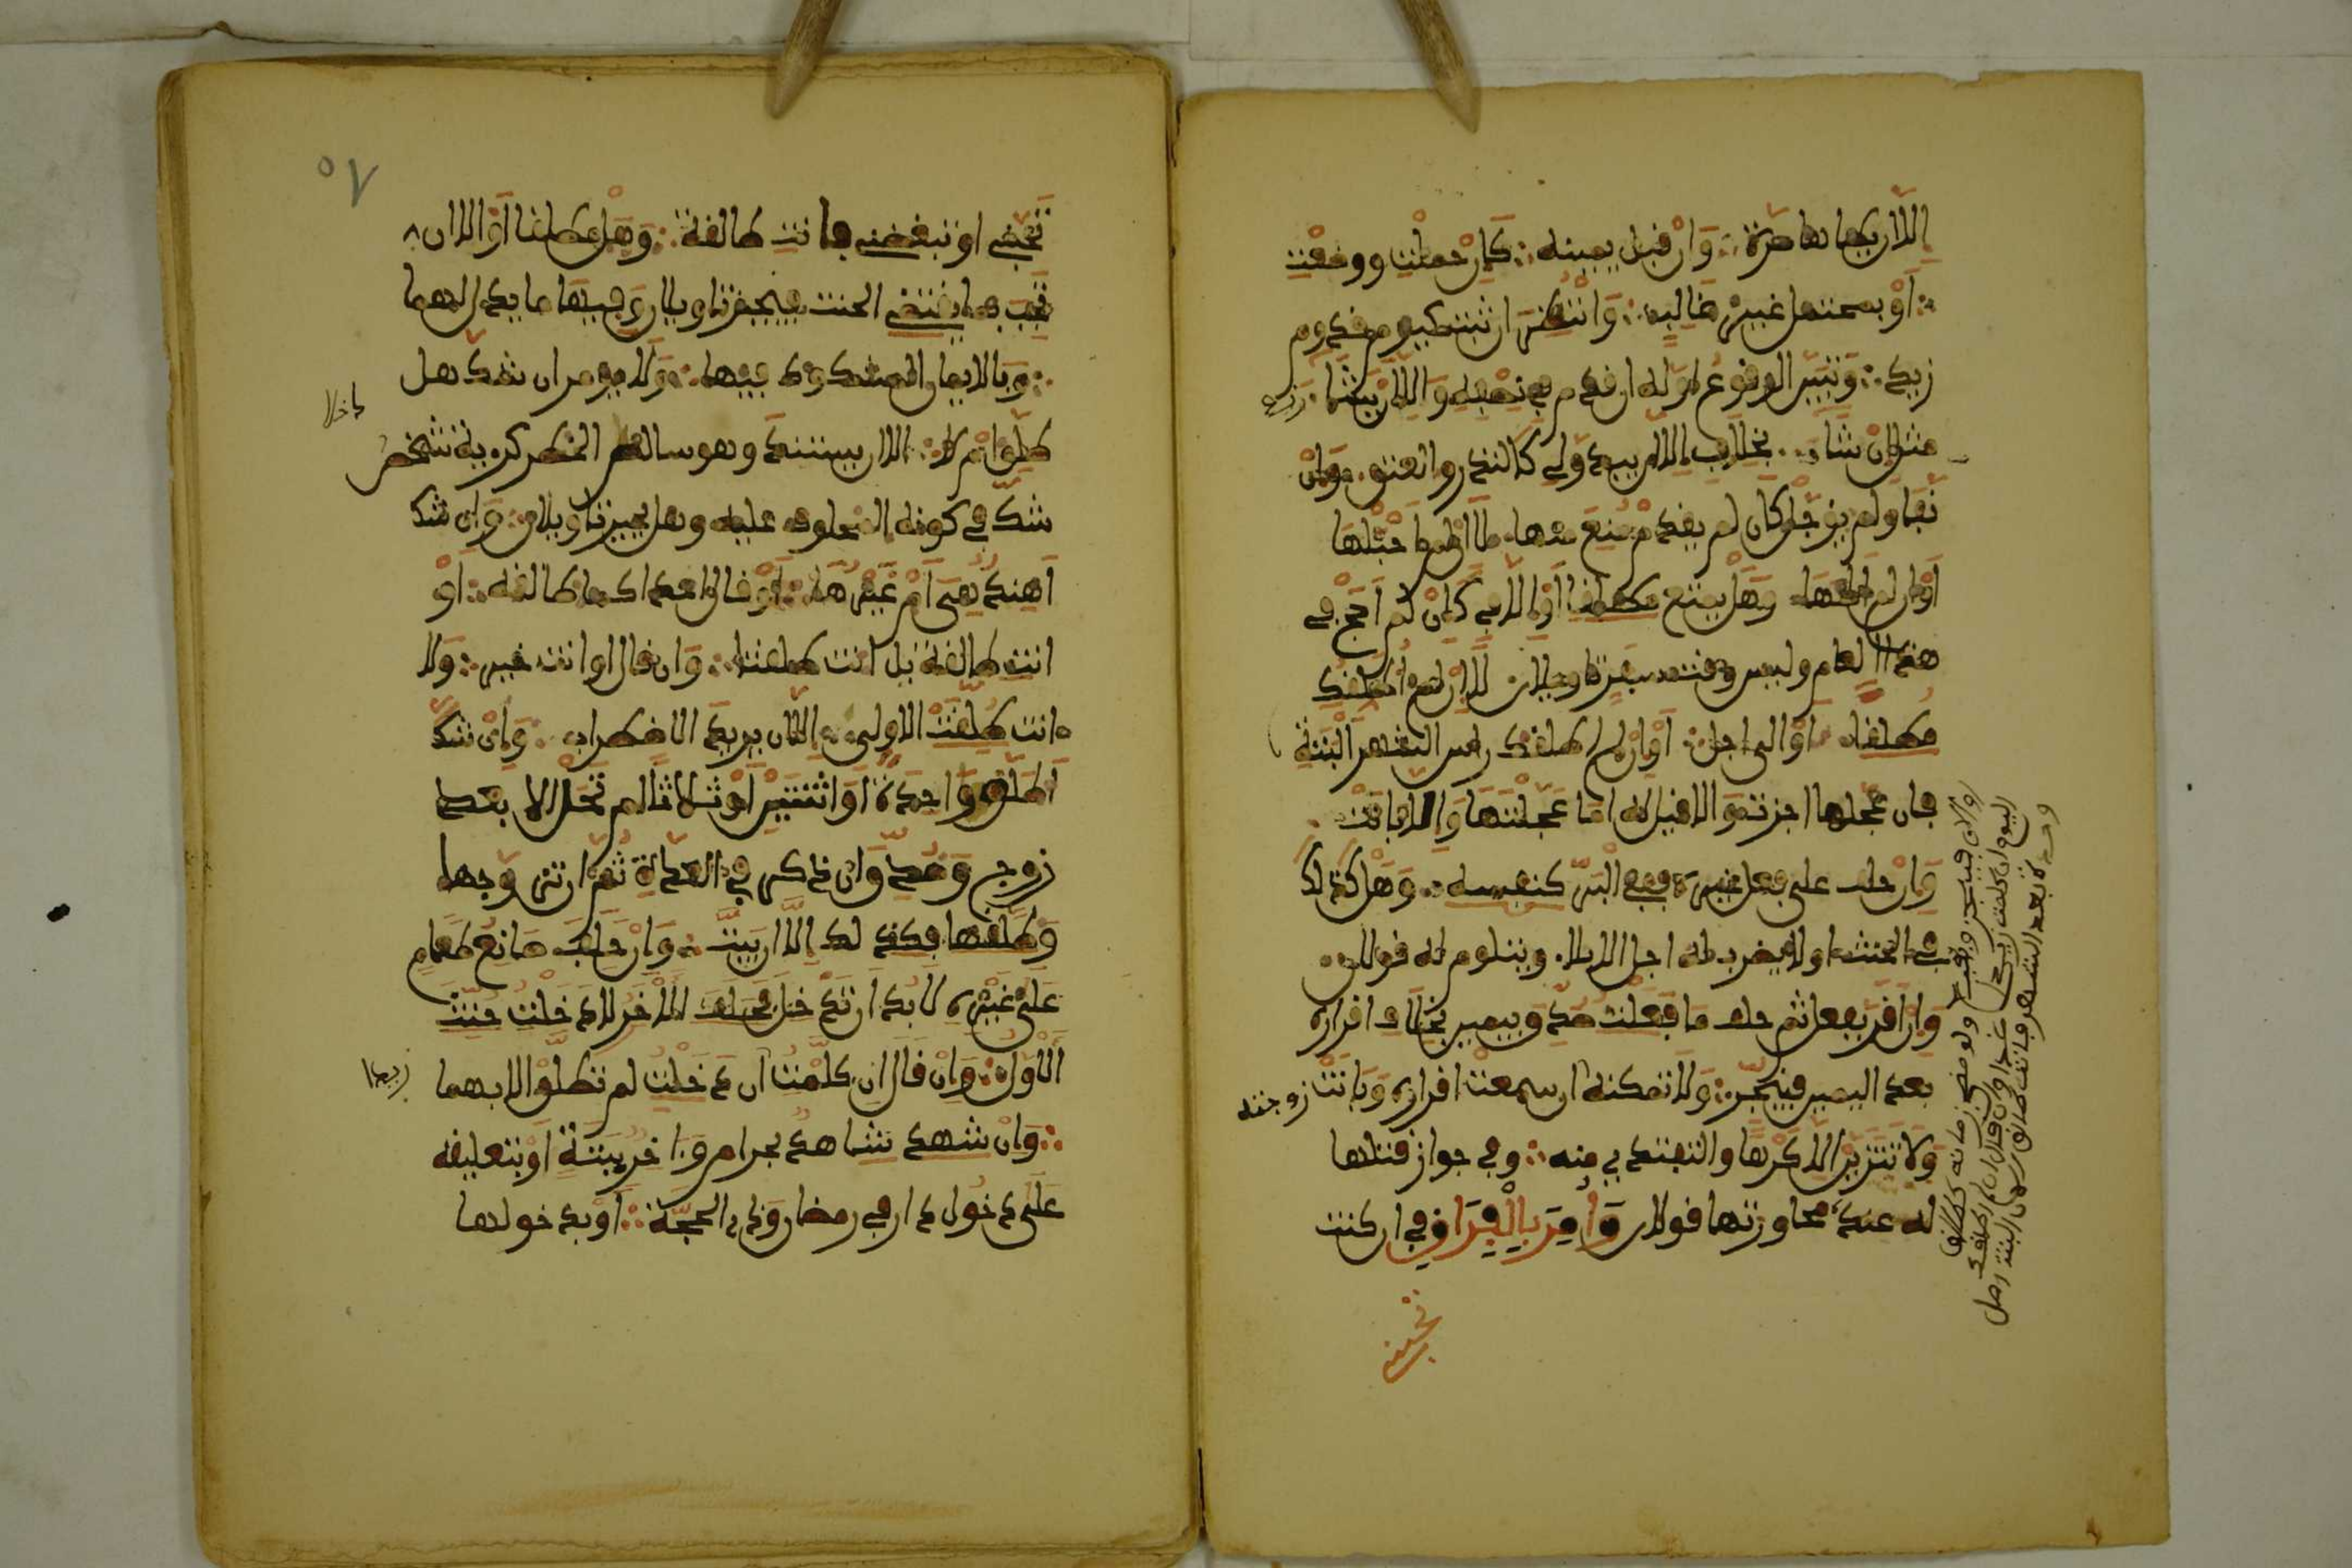 إلا ان يطاها مرة وان قبل يمينه كان حملت ووضعت
او بمحتمل غير غالب وانتظر ان اثبت كيوم قدوم
زيد وتبين الوقوع اوله ان قدم في نصفه والا ان يشا زيد
مثل ان شا بخلاف الا ان يبدو لي كالنذر والعتق وان
نفى ولم يؤجل كان لم يقدم منع منها الا ان لم احبلها
او ان لم اطاها وهل يمنع مطلقا او الا في كان لم احج في
هذا العام وليس وقت سفر تاويلان الا ان لم اطلقك
مطلقا او الى اجل او ان لم اطلقك راس الشهر البتة
فان عجلها اجزت والا قيل له اما عجلتها والا بانت
وان حلف على فعل غيره ففي البر كنفسه وهل كذلك
في الحنث او لا يضرب له اجل الايلا ويتلوم له قولان
وان اقر بفعل ثم حلف ما فعلت صدق بيمين بخلاف اقراره
بعد اليمين فينجز ولا تمكنه ان سمعت اقراره وبانت زوجته
ولا تتزين الا كرها والتفتدي منه وفي جواز قتلها
له عند محاورتها قولان وامر بالفراق في ان كنت
تحبيني
او الان فينجز ويقع ولو مضى زمانه كطالق
اليوم ان كلمت غدا وان قال ان لم اطلقك
وحدة بعد الشهر فانت طالق الان البتة
٥٧
تحبني او تبغضني فانت طالقة وهل مطلقا او الا ان
تجيب بما يقتضي الحنث فينجز تاويلان وفيها ما يدل لهما
وبالايمان المشكوك فيها ولا يومر ان شك هل
طلق ام لا الا ان يستند وهو سالم الخاطر كرؤية شخص داخلا
شك في كونه المحلوف عليه وهل يجبر تاويلان وان شك
اهند هي ام غيرها او قال احداكما طالقة او
انت طالقة بل انت طلقتا وان قال او انت خير ولا
انت طلقت الاولى الا ان يريد الاضطراب وان شك
اطلق واحدة او اثنتين او ثلاثا لم تحل الا بعد
زوج وصدق ان ذكر في العدة ثم ان تزوجها
وطلقها فكذلك الا ان يبت وان حلف صانع طعام
على غيره لا بد ان تدخل فحلف الاخر لا دخلت حنث
الاول وان قال ان كلمت ان دخلت لم تطلق الا بهما
وان شهد شاهد بحرام واخر ببتة او بتعليقه
على دخول دار في رمضان وذي الحجة او بدخولها